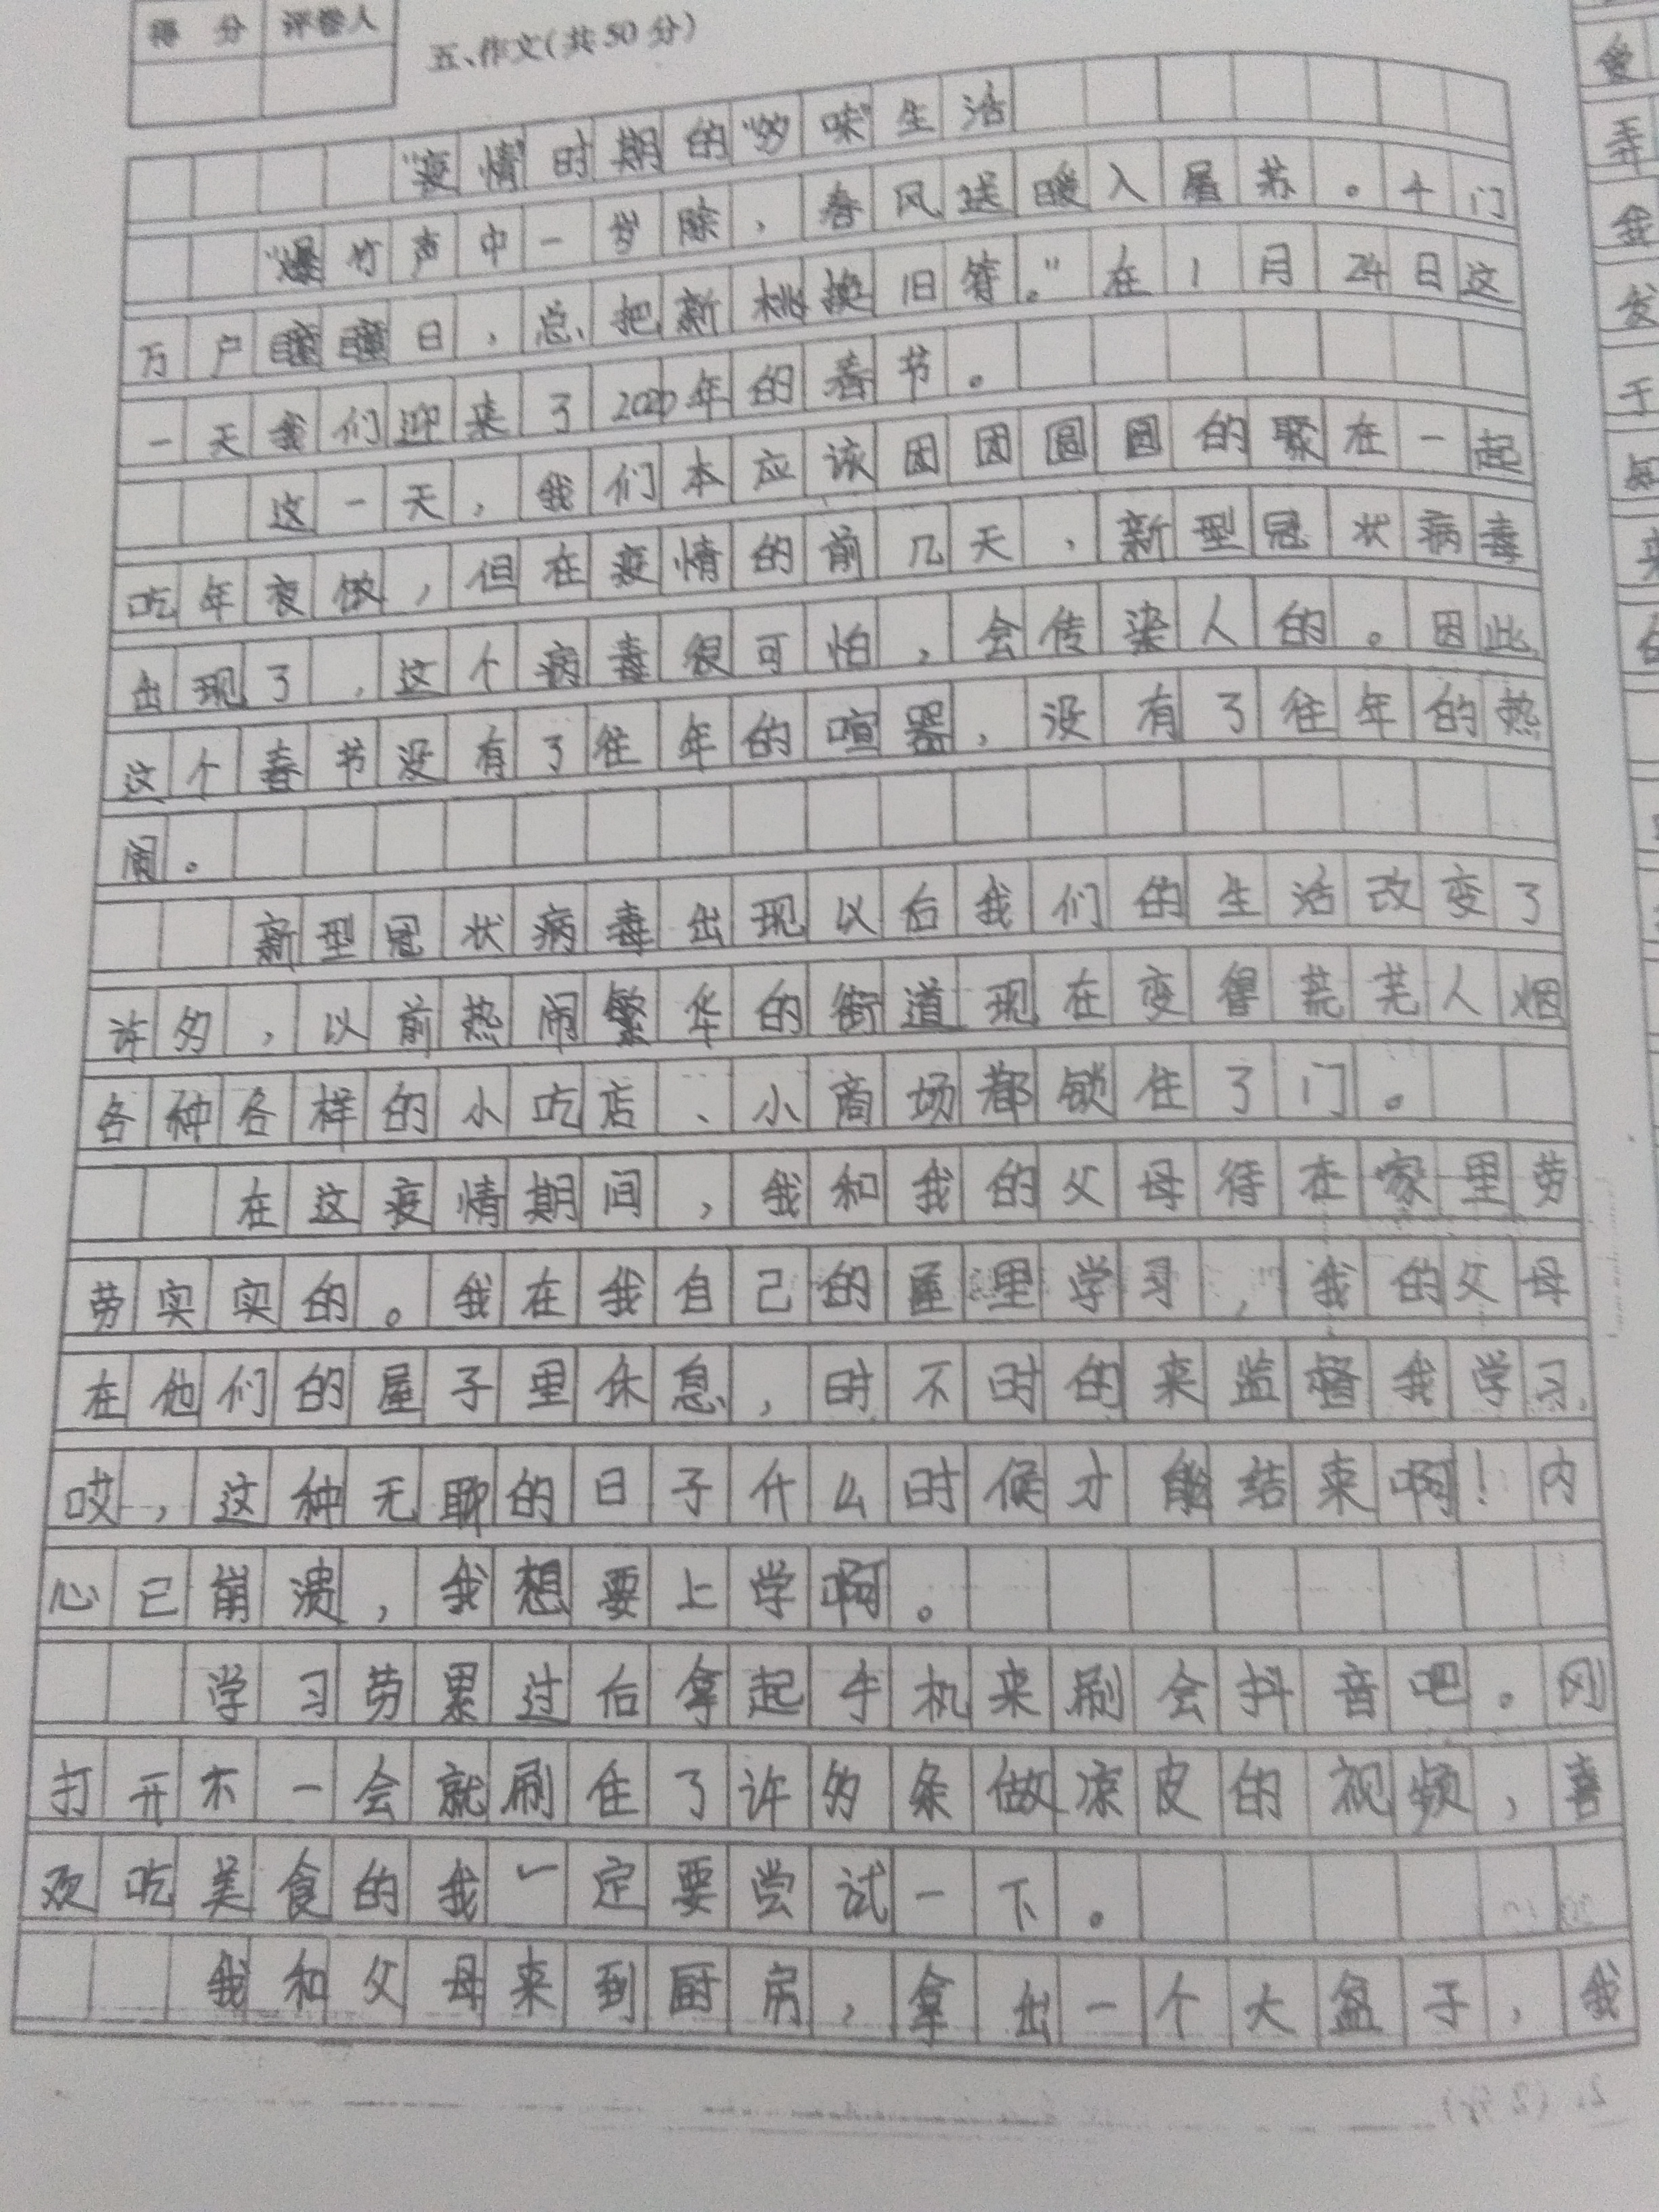 得 分 评卷人
五、作文(共50分)
“疫情”时期的“多味”生活
“爆竹声中一岁除，春风送暖入屠苏。千门
万户瞳瞳日，总把新桃换旧符。”在1月24日这
一天我们迎来了2020年的春节。
这一天，我们本应该团团圆圆的聚在一起
吃年夜饭，但在疫情的前几天，新型冠状病毒
出现了，这个病毒很可怕，会传染人的。因此
这个春节没有了往年的喧嚣，没有了往年的热
闹。
新型冠状病毒出现以后我们的生活改变了
许多，以前热闹繁华的街道现在变得荒芜人烟
各种各样的小吃店、小商场都锁住了门。
在这疫情期间，我和我的父母待在家里劳
劳实实的。我在我自己的屋里学习，我的父母
在他们的屋子里休息，时不时的来监督我学习。
哎，这种无聊的日子什么时候才能结束啊！内
心已崩溃，我想要上学啊。
学习劳累过后拿起手机来刷会抖音吧。刚
打开不一会就刷住了许多条做凉皮的视频，喜
欢吃美食的我一定要尝试一下。
我和父母来到厨房，拿出一个大盆子，我